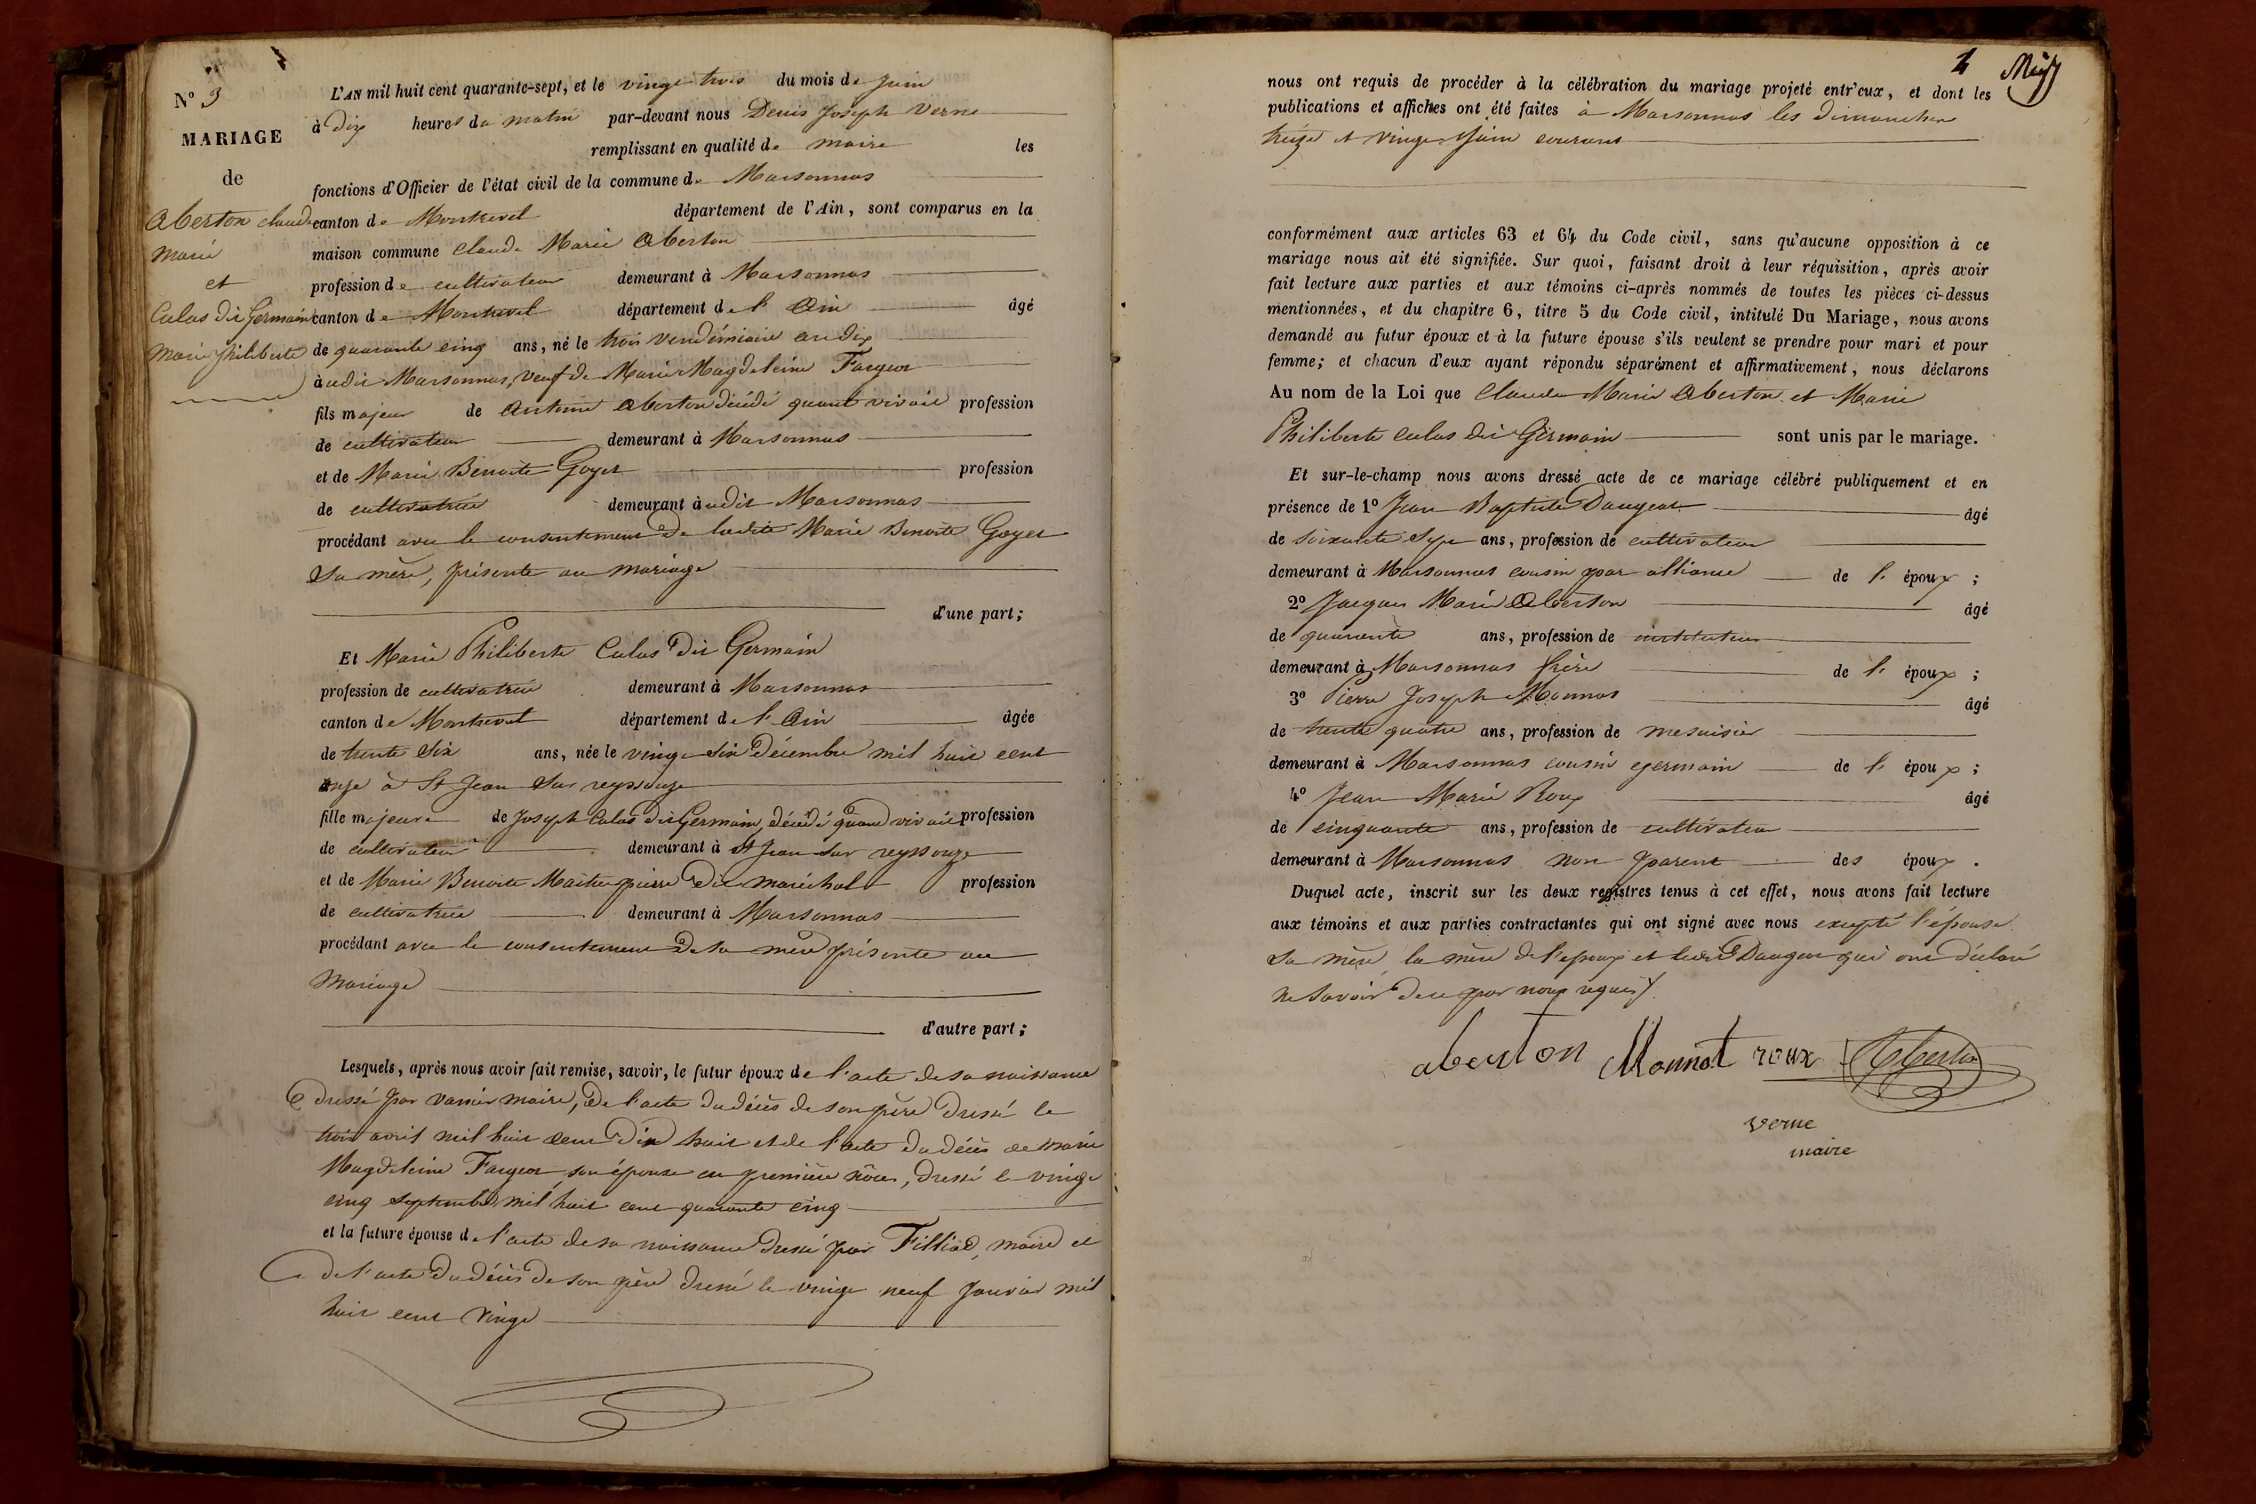 N° 3
MARIAGE
de
Aberton Claude
Marie
et
Calas dit Germain
Marie Philiberte
L'AN mil huit cent quarante-sept, et le vingt trois du mois de Juin
à dix heures du matin par-devant nous Denis Joseph Verne
remplissant en qualité de maire les
fonctions d'Officier de l'état civil de la commune de Marsonnas
canton de Montrevel département de l'Ain, sont comparus en la
maison commune Claude Marie Aberton
profession de cultivateur demeurant à Marsonnas
canton de Montrevel département de l'Ain âgé
de quarante cinq ans, né le trois vendémiaire an dix
à udit Marsonnas, veuf de Marie Magdeleine Fargeot
fils majeur de Antoine Aberton décédé quant vivait profession
de cultivateur demeurant à Marsonnas
et de Marie Benoite Goyet profession
de cultivatrice demeurant à udit Marsonnas
procédant avec le consentement de ladite Marie Benoite Goyet
sa mère, présente au mariage
d'une part;
Et Marie Philiberte Calas dit Germain
profession de cultivatrice demeurant à Marsonnas
canton de Montrevel département de l'Ain âgée
de trente six ans, née le vingt six Décembre mil huit cent
onze à St Jean sur reyssouze
fille majeure de Joseph Calas dit Germain, décédé quand vivait profession
de cultivateur demeurant à St Jean sur reyssouze
et de Marie Benoite Maitrepierre dit maréchal profession
de cultivatrice demeurant à Marsonnas
procédant avec le consentement de sa mère présente au
mariage
d'autre part;
Lesquels, après nous avoir fait remise, savoir, le futur époux de l'acte de sa naissance
dressé par maire, de l'acte du décès de son père dressé le
trois avril mil huit cent dix huit et de l'acte du décès de marie
Magdeleine Fargeot son épouse en première nôces, dressé le vingt
cinq septembre mil huit cent quarante cinq
et la future épouse de l'acte de sa naissance dressé par Filliod, maire et
de l'acte du décès de son père dressé le vingt neuf Janvier mil
huit cent vingt
nous ont requis de procéder à la célébration du mariage projeté entr'eux, et dont les
publications et affiches ont été faites à Marsonnas les dimanches
treize et vingt Juin courant
conformément aux articles 63 et 64 du Code civil, sans qu'aucune opposition à ce
mariage nous ait été signifiée. Sur quoi, faisant droit à leur réquisition, après avoir
fait lecture aux parties et aux témoins ci-après nommés de toutes les pièces ci-dessus
mentionnées, et du chapitre 6, titre 5 du Code civil, intitulé Du Mariage, nous avons
demandé au futur époux et à la future épouse s'ils veulent se prendre pour mari et pour
femme; et chacun d'eux ayant répondu séparément et affirmativement, nous déclarons
Au nom de la Loi que Claude Marie Aberton et Marie
Philiberte Calas dit Germain sont unis par le mariage.
Et sur-le-champ nous avons dressé acte de ce mariage célébré publiquement et en
présence de 1° Jean Baptiste Daugeat âgé
de soixante sept ans, profession de cultivateur
demeurant à Marsonnas cousin par alliance de l' époux;
2° Jacques Marie Aberton âgé
de quarante ans, profession de instituteur
demeurant à Marsonnas frère de l' époux;
3° Pierre Joseph Monnot âgé
de trente quatre ans, profession de menuisier
demeurant à Marsonnas cousin germain de l' époux;
4° Jean Marie Roux âgé
de cinquante ans, profession de cultivateur
demeurant à Marsonnas non parent des époux.
Duquel acte, inscrit sur les deux registres tenus à cet effet, nous avons fait lecture
aux témoins et aux parties contractantes qui ont signé avec nous excepté l'épouse
sa mère, la mère de l'époux et ledit Daugeat qui ont déclaré
ne savoir de ce par nous requis
aberton Monnot roux Aberton
verne
maire